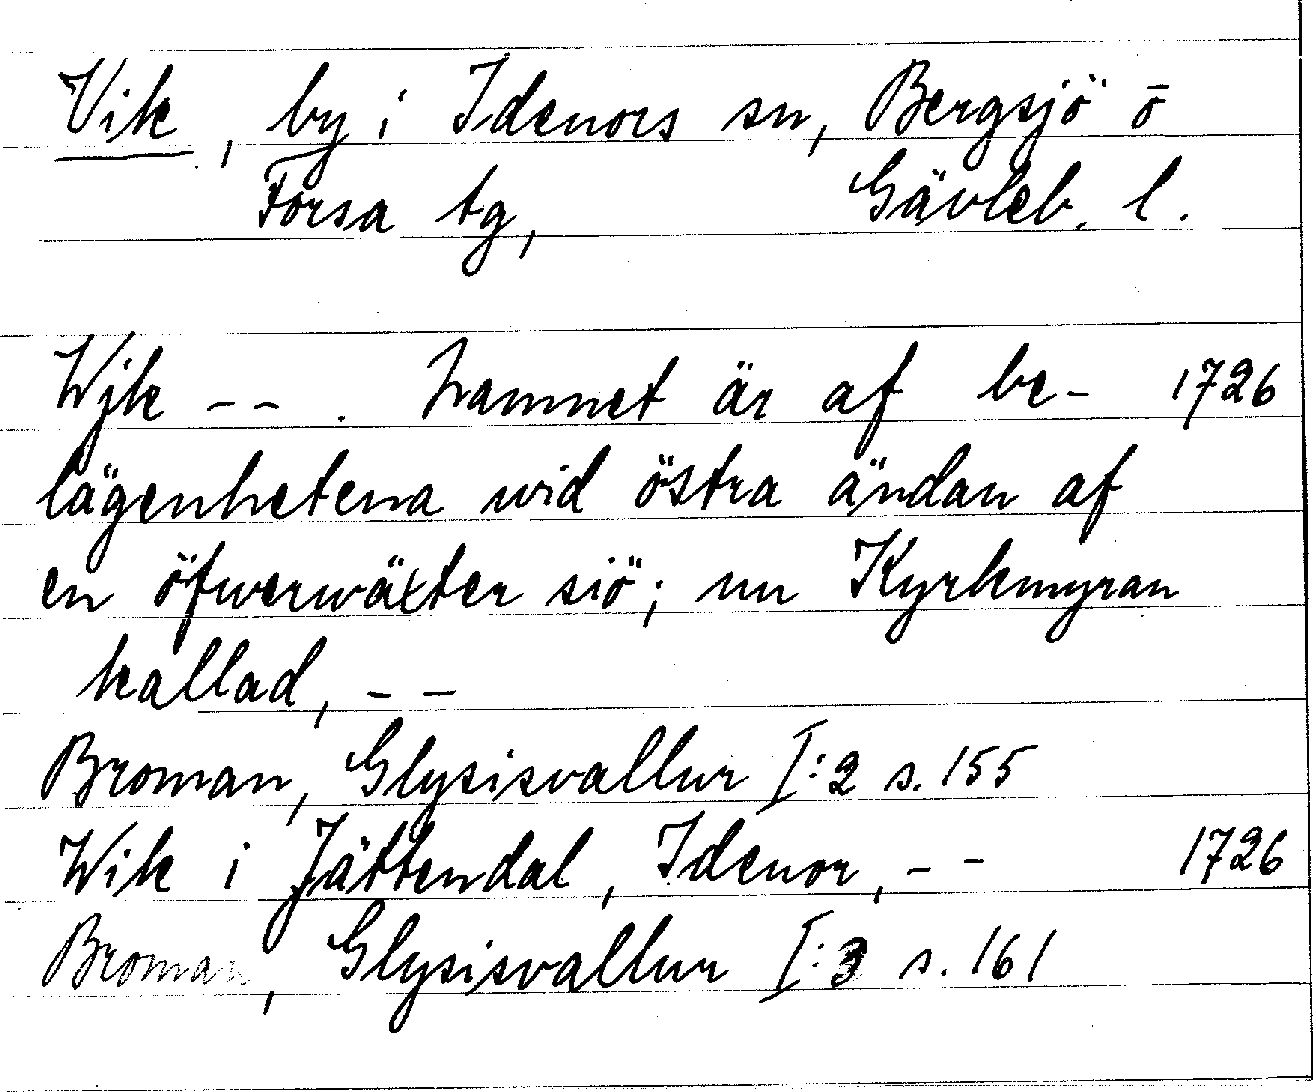 Vik, by i Idenors sn, Bergsjö o
Forsa tg, Gävleb. l.
Wjk -- . Namnet är af be- 1726
lägenhetena wid östra ändan af
en öfwerwäxter siö; nu Kyrkmyran
kallad, --
Broman, Glysisvallur I:2 s. 155
Wik i Jättendal, Idenor, -- 1726
Broman, Glysisvallur I:3 s. 161